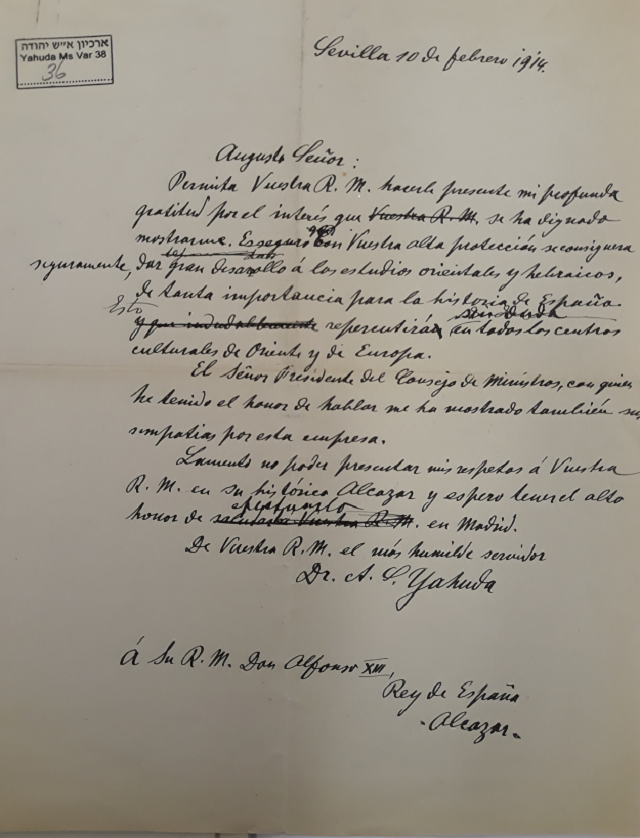 ארכיון א״ש יהודה
Yahuda Ms Var 38
36
Sevilla 10 de febrero 1914.
Augusto Señor:
Permita Vuestra R. M. hacerle presente mi profunda
gratitud por el interés que Vuestra R. M. se ha dignado
mostrarme. Es seguro que con Vuestra alta protección se consiguera
seguramente, dar gran desarollo á los estudios orientales y hebraicos,
de tanta importancia para la historia de España
Esto sin duda
y que indudablemente repercutirá en todos los centros
culturales de Oriente y de Europa.
El Señor Presidente del Consejo de Ministros, con quien
he tenido el honor de hablar me ha mostrado también sus
simpatias por esta empresa.
Lamento no poder presentar mis respetos á Vuestra
R. M. en su histórico Alcazar y espero tener el alto
efectuarlo
honor de saludar a Vuestra R. M. en Madrid.
De Vuestra R. M. el más humilde servidor
Dr. A. S. Yahuda
Á Su R. M. Don Alfonso XIII,
Rey de España
- Alcazar -